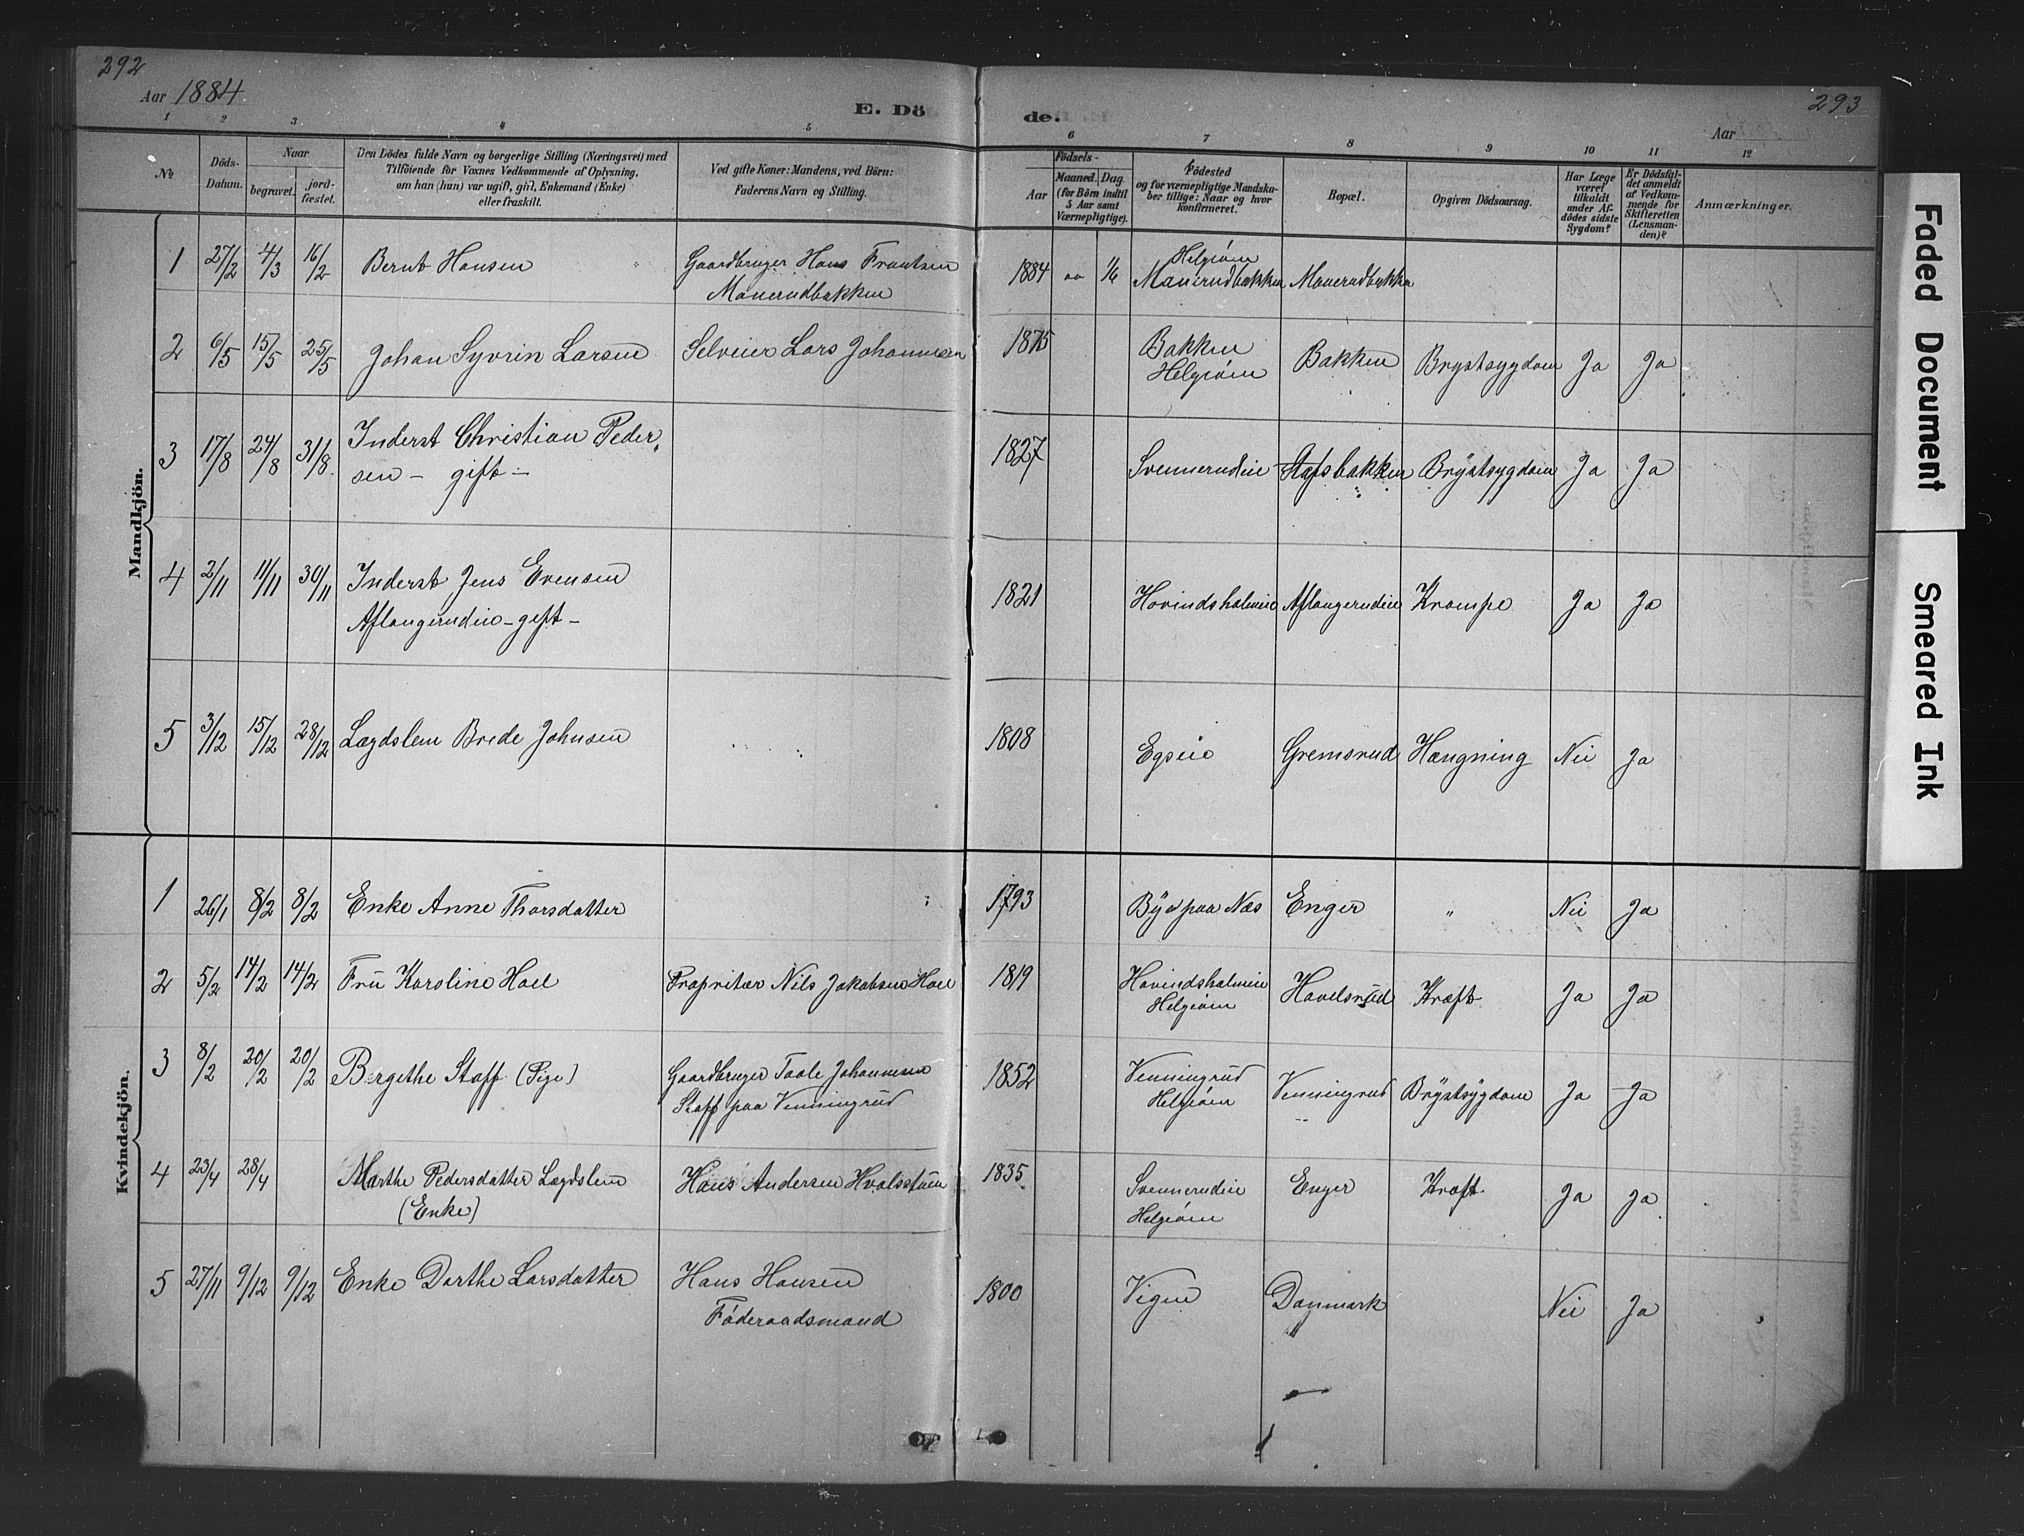 292
Aar 1884
E. Döde.
293
Aar
1 2 3 4 5 6 7 8 9 10 11 12
No
Döds-
Datum.
Naar
begravet.
jord-
fæstet.
Den Dödes fulde Navn og borgerlige Stilling (Næringsvei) med
Tilföiende for Voxnes Vedkommende af Oplysning,
om han (hun) var ugift, gift, Enkemand (Enke)
eller fraskilt.
Ved gifte Koner: Mandens, ved Börn:
Faderens Navn og Stilling.
Födsels-
Aar
Maaned. Dag.
(for Börn indtil
5 Aar samt
Værnepligtige).
Födested
og for værnepligtige Mandska-
ber tillige: Naar og hvor
konfirmeret.
Bopæl.
Opgiven Dödsaarsag.
Har Læge
været
tilkaldt
under Af-
dödes sidste
Sygdom?
Er Dödsfal-
det anmeldt
af Vedkom-
mende for
Skifteretten
(Lensman-
den)?
Anmærkninger.
Mandkjön.
1 27/2 4/3 16/2 Bernt Hansen Gaardbruger Hans Frantsen
Manerudbakken
1884 1/6 Helgeøen
Manerudbakken Manerudbakken
2 6/5 15/5 25/5 Johan Syvrin Larsen Selveier Lars Johannesen 1875 Bakken
Helgeøen Bakken Brystsygdom Ja Ja
3 17/8 24/8 31/8 Inderst Christian Peder-
sen - gift -
1827 Svennerudeie Stafsbakken Brystsygdom Ja Ja
4 2/11 11/11 30/11 Inderst Jens Evensen
Aflangerudeie - gift -
1821 Hovindsholmeie Aflangerudeie Krampe Ja Ja
5 3/12 15/12 28/12 Lægdslem Brede Johnsen 1808 Egseie Gremsrud Hængning Nei Ja
Kvindekjön.
1 26/1 8/2 8/2 Enke Anne Thorsdatter 1793 Byd paa Næs Enger " Nei Ja
2 5/2 14/2 14/2 Fru Karoline Hoel Propritær Nils Jakobsen Hoel 1819 Hovindsholmeie
Helgeøen Havelsrud Kræft Ja Ja
3 8/2 20/2 20/2 Bergethe Staff (Pige) Gaardbruger Taale Johannesen
Staff paa Venningrud
1852 Venningrud
Helgeøen Venningrud Brystsygdom Ja Ja
4 23/4 28/4 Marthe Pedersdatter Lægdslem
(Enke)
Hans Andersen Hvalsstuen 1835 Svennerudeie
Helgeøen Enger Kræft Ja Ja
5 27/11 9/12 9/12 Enke Dorthe Larsdatter Hans Hansen
Føderaadsmand
1800 Vigen Danmark Nei Ja
Faded Document
Smeared Ink